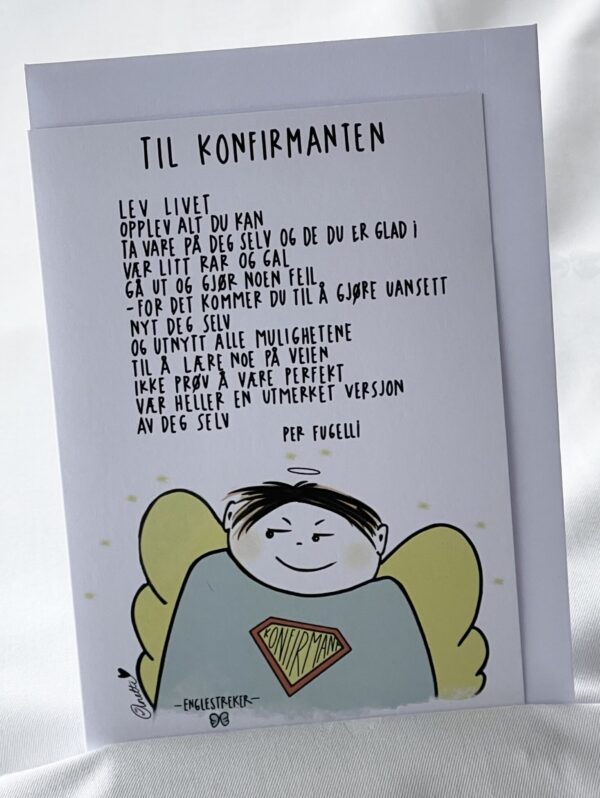 TIL KONFIRMANTEN
LEV LIVET
OPPLEV ALT DU KAN
TA VARE PÅ DEG SELV OG DE DU ER GLAD i
VÆR LITT RAR OG GAL
GÅ UT OG GJØR NOEN FEIL
-FOR DET KOMMER DU TIL Å GJØRE UANSETT
NYT DEG SELV
OG UTNYTT ALLE MULIGHETENE
TIL Å LÆRE NOE PÅ VEIEN
IKKE PRØV Å VÆRE PERFEKT
VÆR HELLER EN UTMERKET VERSJON
AV DEG SELV
PER FUGELLi
KONFIRMANT
-ENGLESTREKER-